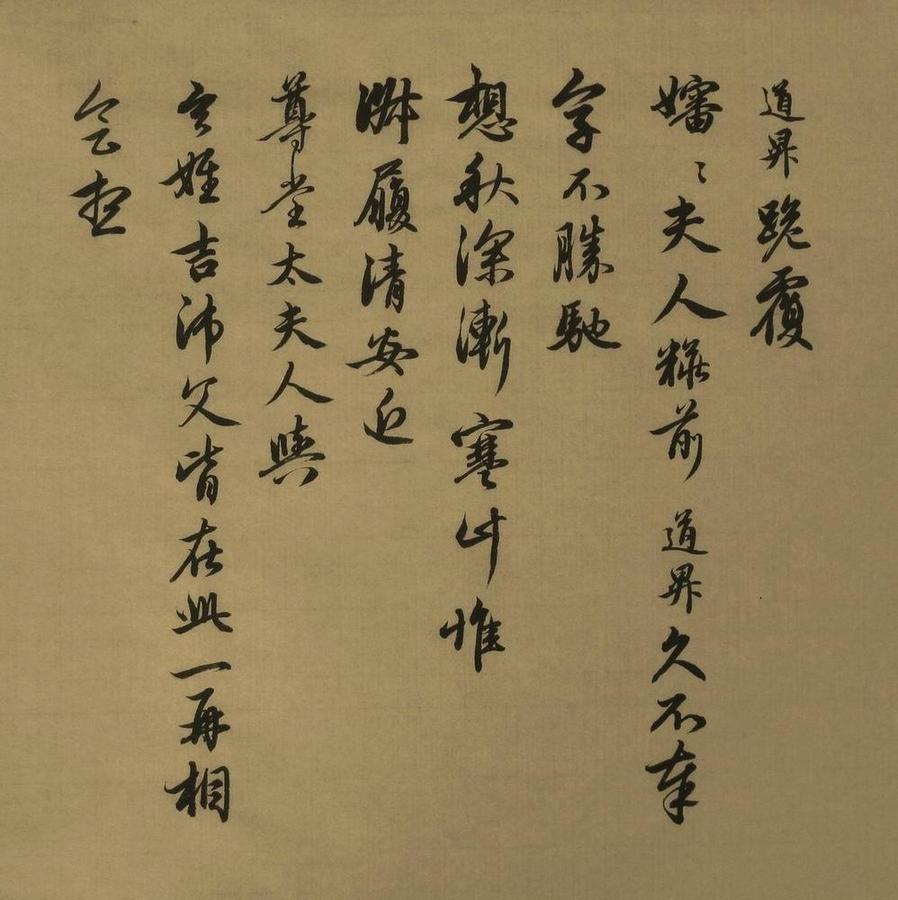 道昇跪覆
嬸〻夫人糚前道昇久不奉
字不勝馳
想秋深漸寒計惟
淑履清安近
尊堂太夫人與
令姪吉師父皆在此一再相
會想